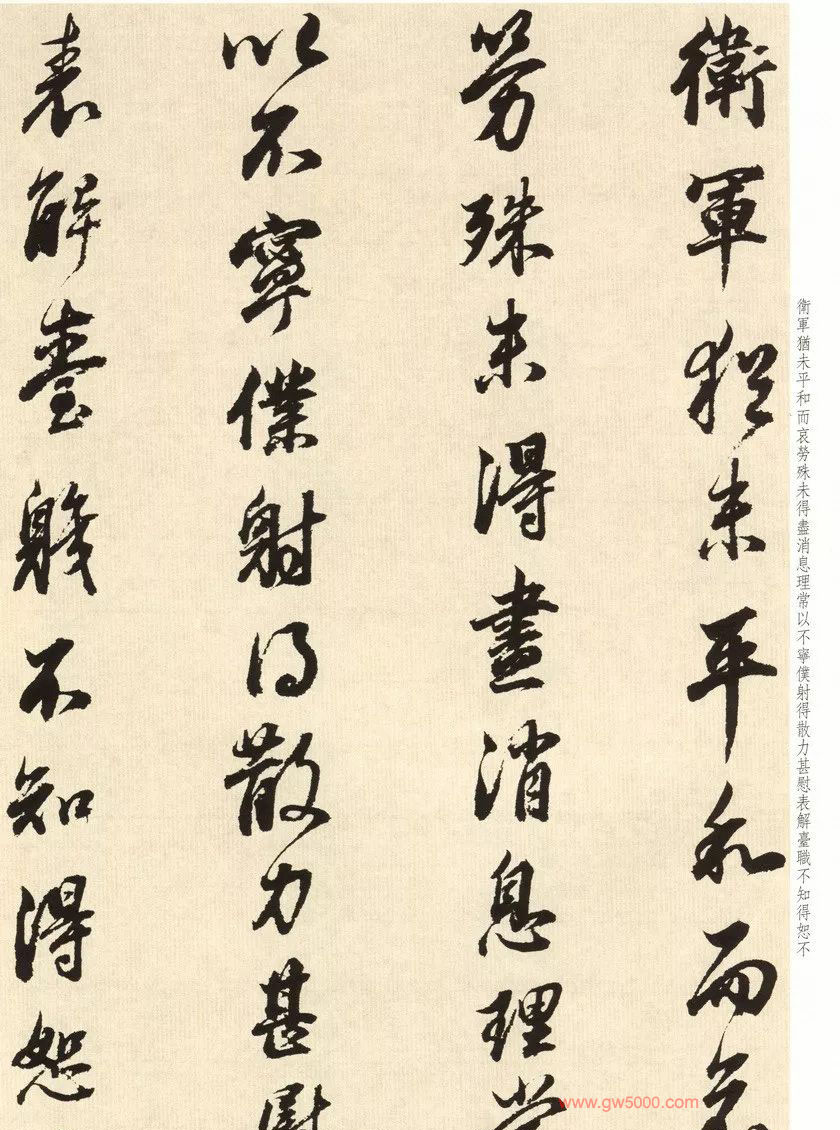 衛軍猶未平和而哀
勞殊未得盡消息理常
以不寧僕射得散力甚慰
表解臺職不知得恕
衛軍猶未平和而哀勞殊未得盡消息理常以不寧僕射得散力甚慰表解臺職不知得恕不
www.gw5000.com